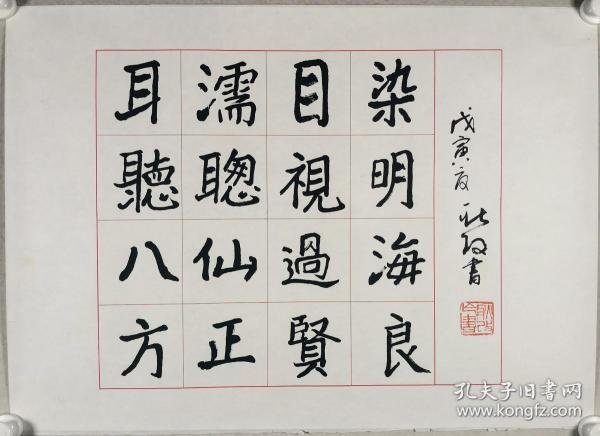 耳濡目染
聽聰視明
八仙過海
方正賢良
戊寅夏
書
孔夫子旧书网
www.kongfz.com